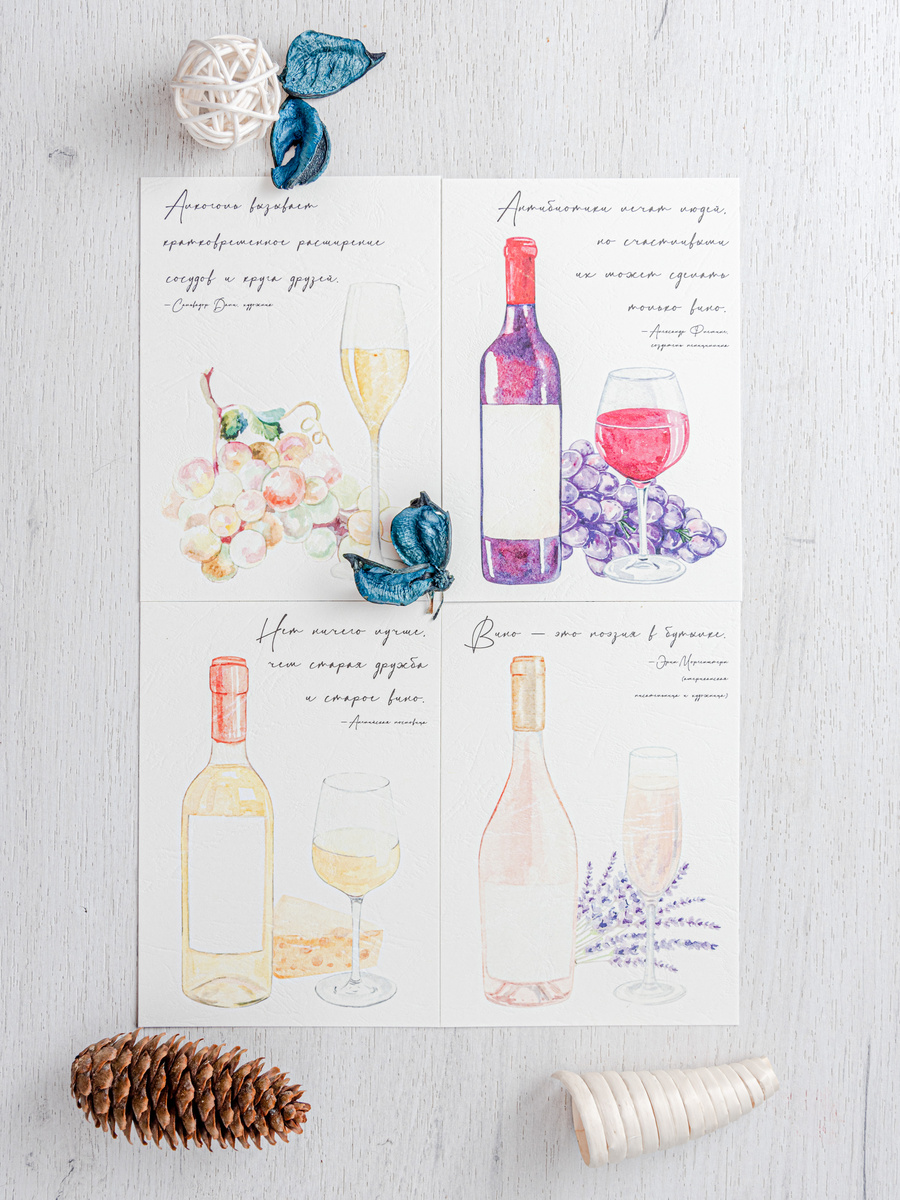 Алкоголь вызывает
кратковременное расширение
сосудов и круга друзей.
— Сальвадор Дали, художник
Антибиотики лечат людей,
но счастливыми
их может сделать
только вино.
— Александр Флеминг,
создатель пенициллина
Нет ничего лучше,
чем старая дружба
и старое вино.
— Английская пословица
Вино — это поэзия в бутылке.
(американская
писательница и художница)